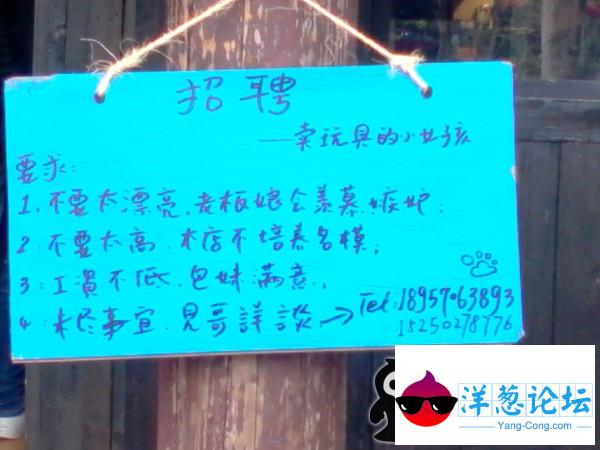 招聘
——卖玩具的小女孩
要求:
1、不要太漂亮,老板娘会羡慕嫉妒;
2、不要太高,本店不培养名模;
3:工資不低,包妹滿意,
4:未尽事宜,見哥詳談→Tel:18957063893
15250278776
洋葱论坛
Yang-Cong.com